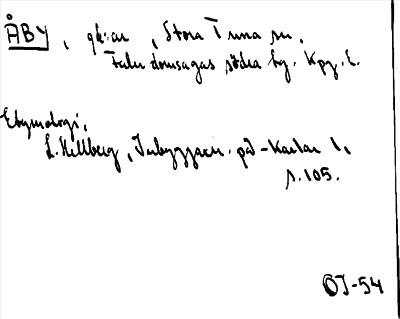 ÅBY, gd:ar, Stora Tuna sn,
Falu domsagas södra tg. Kpg. l.
Etymologi,
L. Hellberg, Inbyggarn. på -karlar 1,
s. 105.
OJ-54